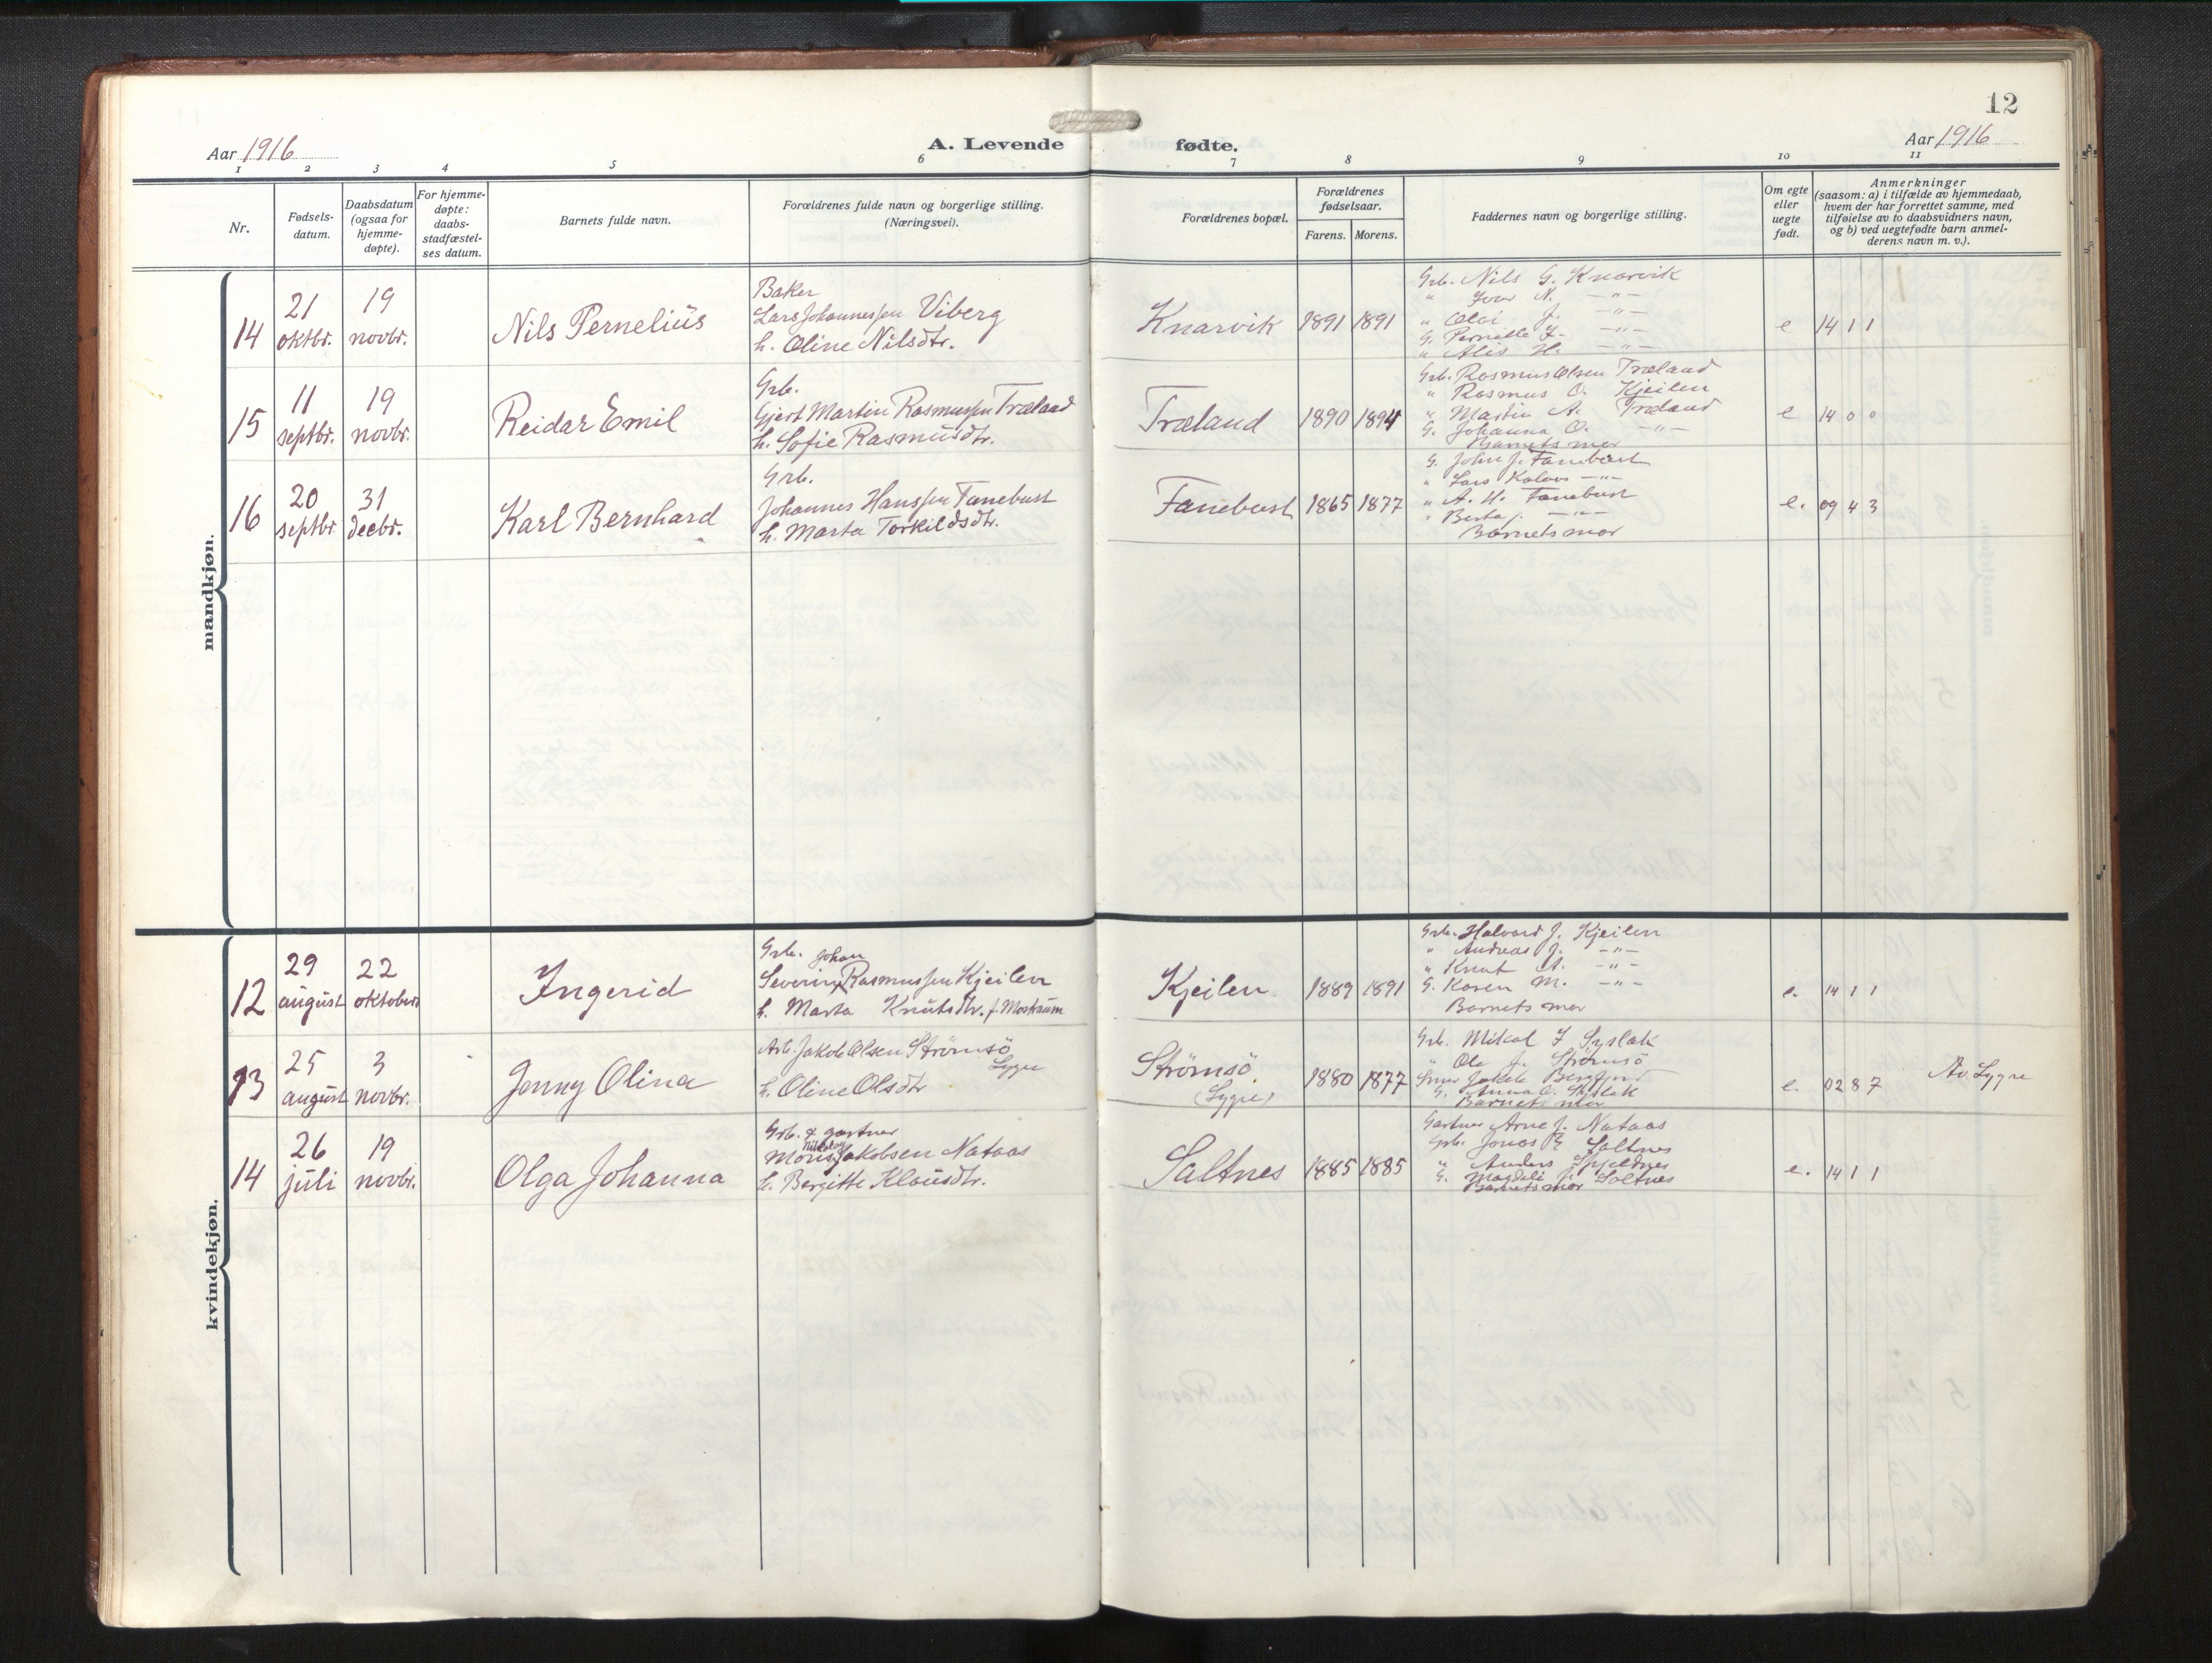 12
Aar 1916
A. Levende
fødte.
Aar 1916
1 2 3 4 5 6 7 8 9 10 11
Nr.
Fødsels-
datum.
Daabsdatum
(ogsaa for
hjemme-
døpte).
For hjemme-
døpte:
daabs-
stadfæstel-
ses datum.
Barnets fulde navn.
Forældrenes fulde navn og borgerlige stilling.
(Næringsvei).
Forældrenes bopæl.
Forældrenes
fødselsaar.
Farens. Morens.
Faddernes navn og borgerlige stilling.
Om egte
eller
uegte
født.
Anmerkninger
(saasom: a) i tilfælde av hjemmedaab,
hvem der har forrettet samme, med
tilføielse av to daabsvidners navn,
og b) ved uegtefødte barn anmel-
derens navn m. v.).
mandkjøn.
14
21
oktbr.
19
novbr.
Nils Pernelius
Baker
Lars Johannessen Viberg
h. Oline Nilsdtr.
Knarvik
1891 1891
Grb. Nils G. Knarvik
" Iver N. -"-
" J. -"-
G. Pernille -"-
" Alis H. -"-
e
14 1 1
15
11
septbr.
19
novbr.
Reidar Emil
Grb.
Gjert Martin Rasmussen Træland
h. Sofie Rasmusdtr.
Træland
1890 1894
Grb. Rasmus Olsen Træland
" Rasmus O. Kjeilen
" Martin A. Træland
G. Johanna O. -"-
Barnets mor
e
14 0 0
16
20
septbr.
31
decbr.
Karl Bernhard
Grb.
Johannes Hanssen Fanebust
h. Marta Torkildsdtr.
Fanebust
1865 1877
G. John J. Fanebust
" Lars -"-
" A. H. Fanebust
" Berta J. -"-
Barnets mor
e.
09 4 3
kvindekjøn.
12
29
august
22
oktober
Ingerid
Grb. Johan
Severin Rasmussen Kjeilen
h. Marta Knutsdtr. f. Mostraum
Kjeilen
1889 1891
Grb. Halvard J. Kjeilen
" Andreas J. -"-
" Knut A. -"-
G. Karen M. -"-
Barnets mor
e.
14 1 1
13
25
august
3
novbr.
Jenny Olina
Arb. Jakob Olsen Strömsö
Lygre
h. Oline Olsdtr
Strömsö
(Lygre)
1880 1877
Grb. Mikal Syslak
" Ole J. Strömsö
Jakob
G. Anna O. Syslak
Barnets mor
e.
02 8 7
Av Lygre
14
26
juli
19
novbr.
Olga Johanna
Grb. & gartner
Nikolay
Mons Jakobsen Nataas
h. Bergitte Klausdtr.
Saltnes
1885 1885
Gartner Arne J. Nataas
Grb. Jonas Saltnes
" Anders
G. Magdeli J. Saltnes
Barnets mor
e.
14 1 1